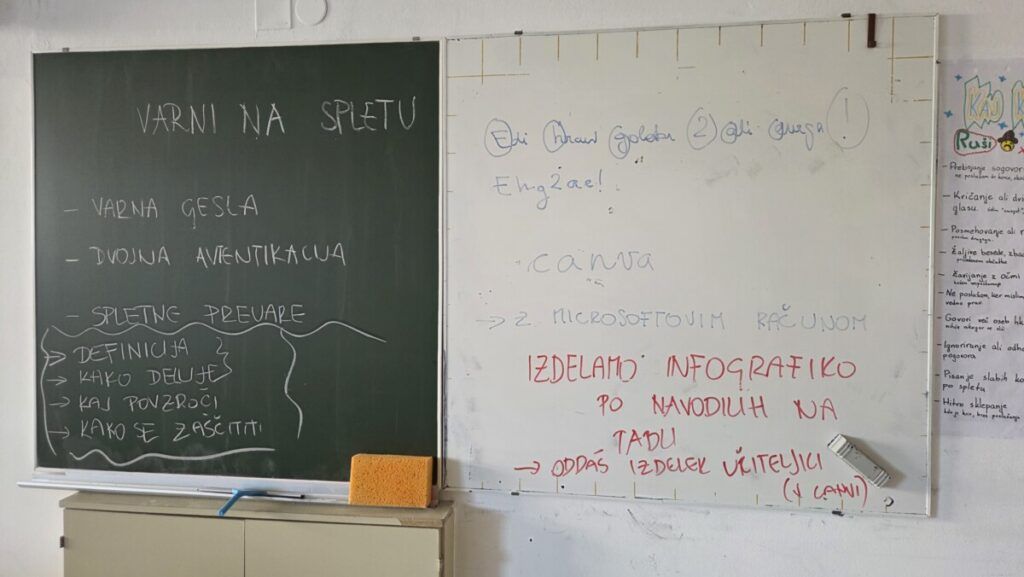 VARNI NA SPLETU
- VARNA GESLA
- DVOJNA AVTENTIKACIJA
- SPLETNE PREVARE
→ DEFINICIJA
→ KAKO DELUJE
→ KAJ POVZROČI
→ KAKO SE ZAŠČITITI
! 
canva
→ Z MICROSOFTOVIM RAČUNOM
IZDELAMO INFOGRAFIKO
PO NAVODILIH NA
TADU
→ ODDAŠ IZDELEK UČITELJICI
(V CANVI)
KAJ
Ruši
- Prebijanje sogovor
- Kričanje ali dvi
glasu.
- Posmehovanje ali
- Žaljive besede, zba
- Zavijanje z očmi
- Ne poslušam, ker mislim
vedno prav
- Govori več oseb hk
- Ignoriranje ali odho
pogovora
- Pisanje slabih ko
po spletu
- Hitro sklepanje